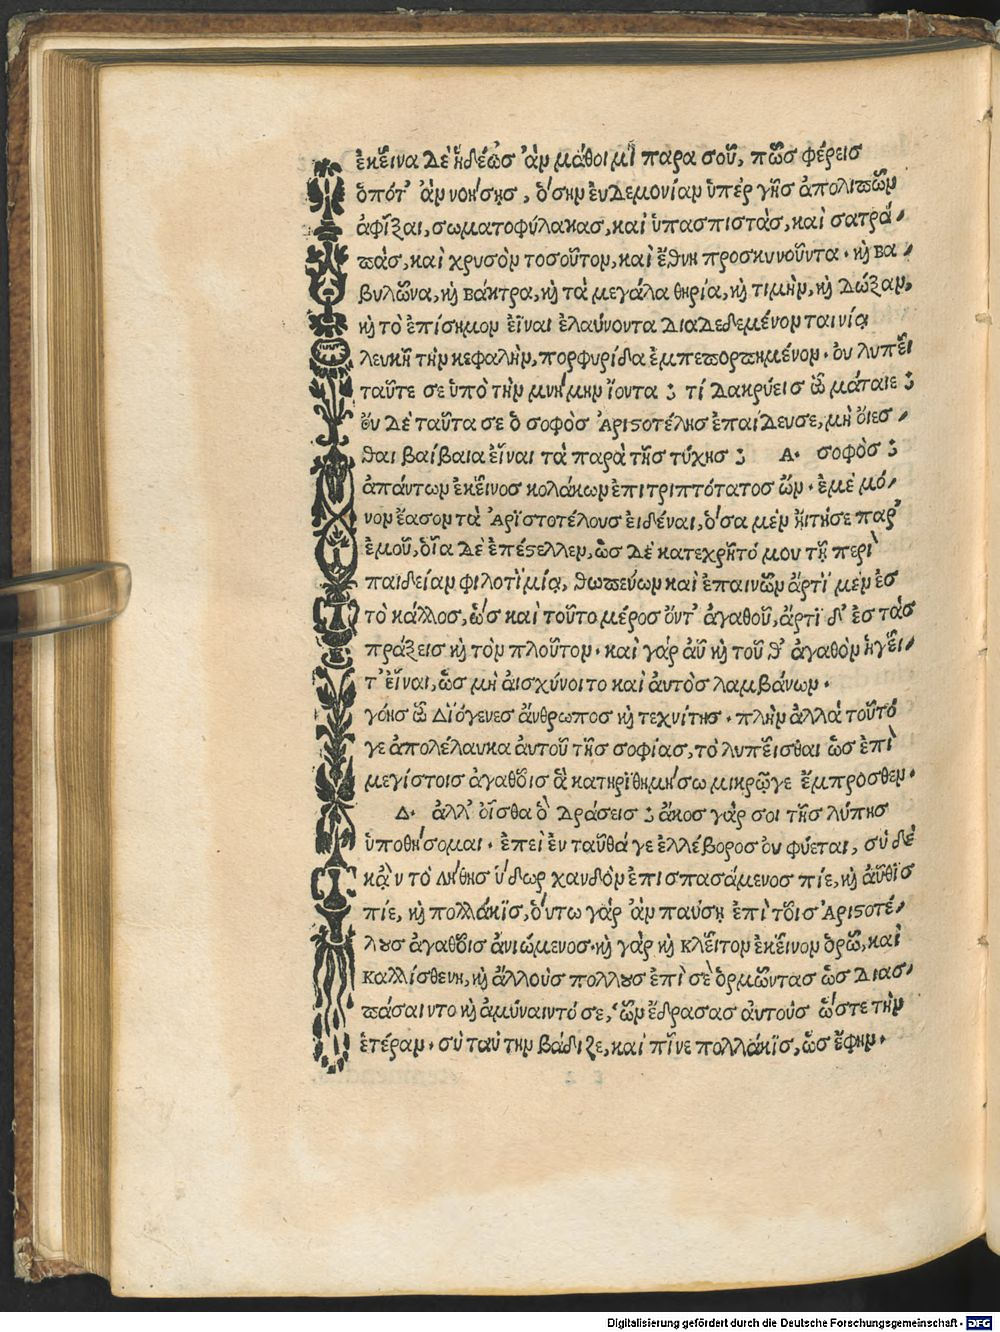 ἐκεῖινα δὲ ἡδέως ἂν μάθοιμι παρα σοῦ, πῶς φέρεις
ὁπότ' ἂν νοήσῃς, ὅσην ἐυδεμονίαν ὑπέρ γῆς ἀπολιπὼν
ἀφῖξαι, σωματοφύλακας, καὶ ὑπασπιστὰς, καὶ σατρά-
πὰς, καὶ χρυσὸν τοσοῦτον, καὶ ἔθνη προσκυνοῦντα. κὴ βα-
βυλῶνα, κὴ βάκτρα, κὴ τὰ μεγάλα θηρία, κὴ τιμὴν, κὴ δόξαν,
κὴ τὸ ἐπίσημον εἶναι ἐλαύνοντα διαδεδεμένον ταινίᾳ
λευκῇ τὴν κεφαλὴν, πορφυρίδα ἐμπεπορπημένον. ὀυ λυπεῖ
ταῦτε σε ὑπὸ τὴν μνήμην ἴοντα; τί δακρύεις ὦ μάταιε;
ὀυ δὲ ταῦτα σε ὁ σοφὸς Ἀριστοτέλης ἐπαίδευσε, μὴ ὄιες-
θαι βαίβαια εἶναι τὰ παρὰ τῆς τύχης; Α. σοφὸς;
ἀπάντων ἐκεῖνος κολάκων ἐπιτριπτότατος ὤν. ἐμὲ μό-
νον ἔασον τὰ Ἀριστοτέλους ἐιδέναι, ὅσα μὲν ᾔτησε παρ'
ἐμοῦ, ὁῖα δὲ ἐπέστελλεν, ὡς δὲ κατεχρῆτό μου τῇ περὶ
παιδείαν φιλοτιμίᾳ, θωπεύων καὶ ἐπαινῶν ἄρτι μὲν ἐς
τὸ κάλλος, ὡς καὶ τοῦτο μέρος ὄντ' ἀγαθοῦ, ἄρτι δ' ἐς τὰς
πράξεις κὴ τὸν πλοῦτον. καὶ γάρ ἀῦ κὴ τοῦθ' ἀγαθὸν ἡγεῖ-
τ' εἶναι, ὡς μὴ ἀισχύνοιτο καὶ ἀυτὸς λαμβάνων.
γόης ὦ Διόγενες ἄνθρωπος κὴ τεχνίτης. πλὴν ἀλλὰ τοῦτό
γε ἀπολέλαυκα ἀυτοῦ τῆς σοφίας, τὸ λυπεῖσθαι ὡς ἐπὶ
μεγίστοις ἀγαθοῖς ἃ κατηριθμήσω μικρῷγε ἔμπροσθεν.
Δ. ἀλλ' οἶσθα ὃ δράσεις; ἄκος γάρ σοι τῆς λύπης
ὑποθήσομαι. ἐπεὶ ἐνταῦθά γε ἐλλέβορος ὀυ φύεται, σὺ δὲ
κἂν τὸ λήθης ὕδωρ χανδὸν ἐπισπασάμενος πίε, κὴ ἀῦθις
πίε, κὴ πολλάκις, ὅυτω γάρ ἂν παύσῃ ἐπὶ τοῖς Ἀριστοτέ-
λους ἀγαθοῖς ἀνιώμενος. κὴ γάρ κὴ Κλεῖτον ἐκεῖνον ὁρῶ, καὶ
Καλλίσθενη, κὴ ἄλλους πολλους ἐπὶ σὲ ὁρμῶντας ὡς διασ-
πάσαιντο κὴ ἀμύναιντό σε, ὧν ἔδρασας ἀυτούς ὥστε τὴν
ἑτέραν. σὺ ταύτην βάδιζε, καὶ πῖνε πολλάκις, ὡς ἔφην.
Digitalisierung gefördert durch die Deutsche Forschungsgemeinschaft - DFG